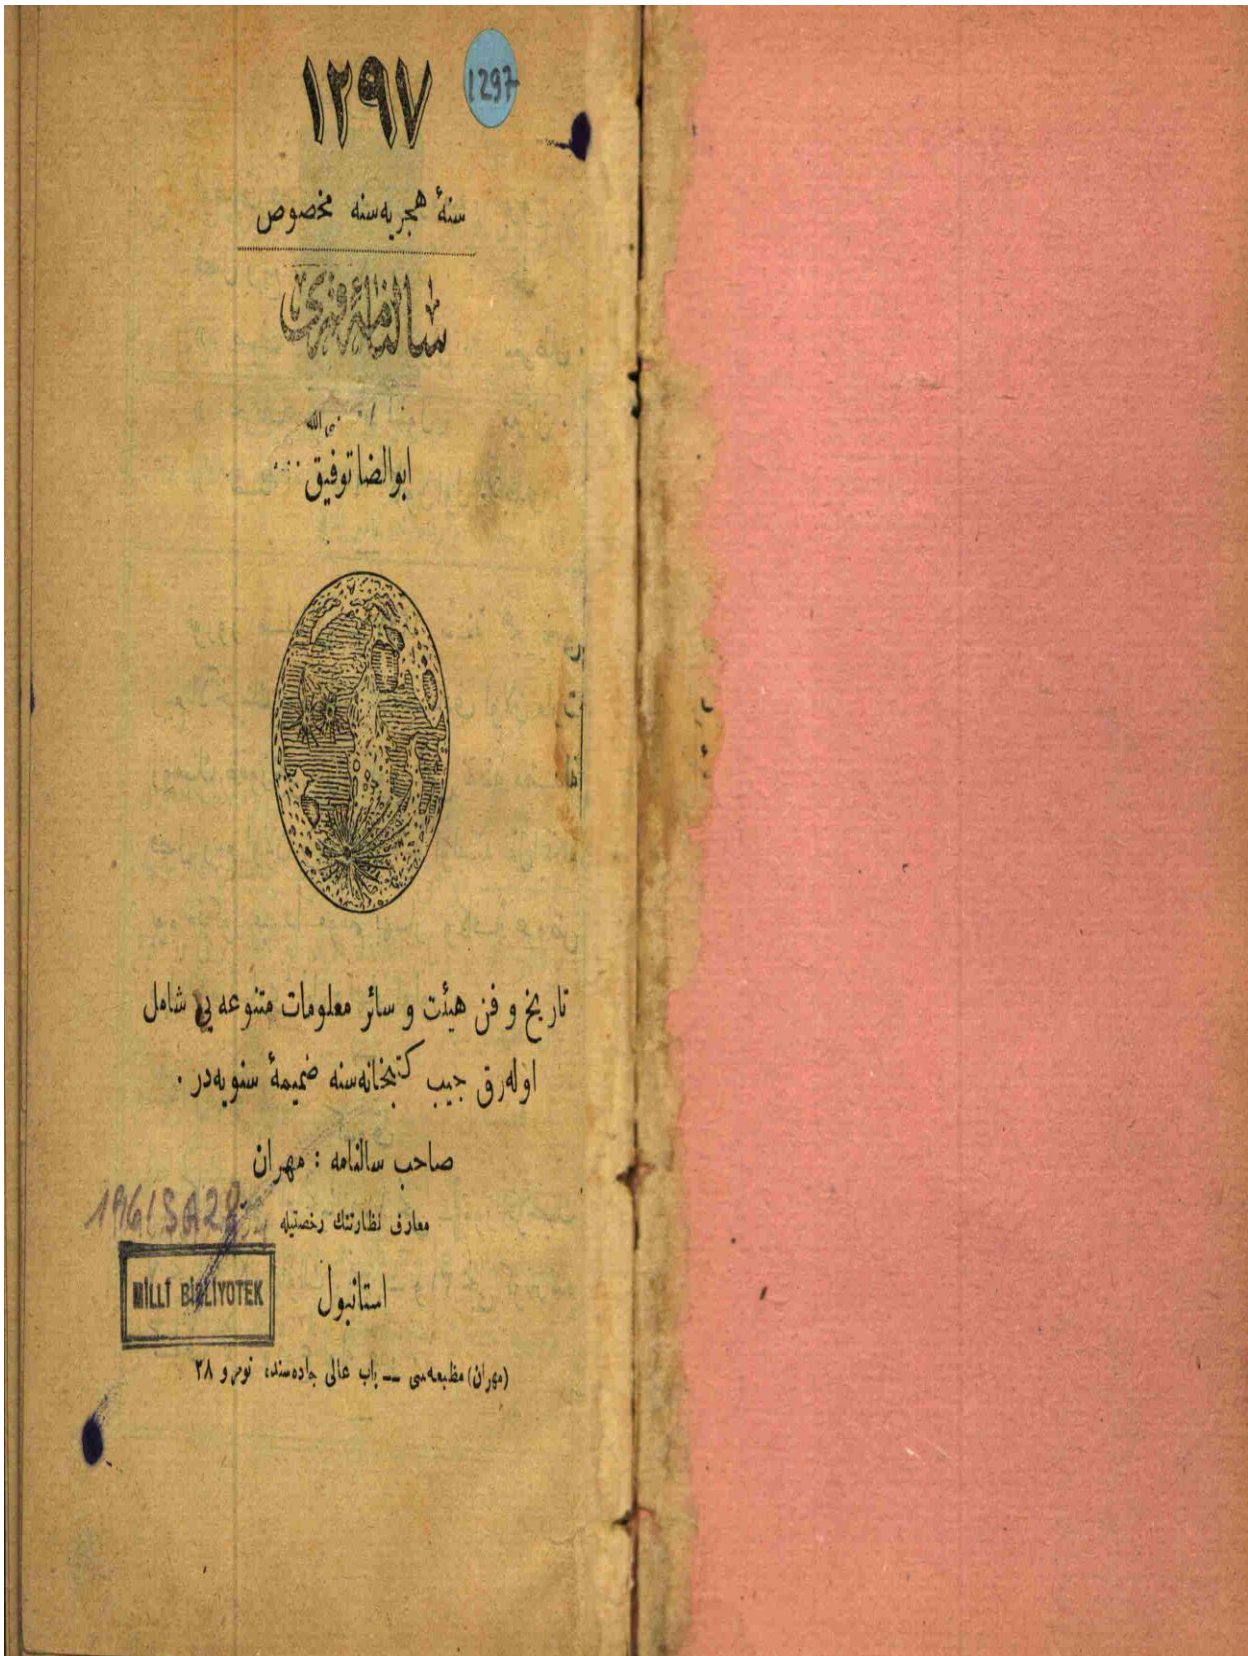 ۱۲۹۷
1297
سنهٔ هجریه‌سنه مخصوص
سالنامهٔ قمری
ابوالضیا توفیق
تاریخ و فن هیئت و سائر معلومات متنوعه‌یی شامل
اوله‌رق جیب کتبخانه‌سنه ضمیمهٔ سنویه‌در .
صاحب سالنامه : مهران
معارف نظارتنك رخصتیله
استانبول
MİLLÎ BİBLİYOTEK
(مهران) مطبعه‌سی — باب عالی جاده‌سنده نومرو ۲۸